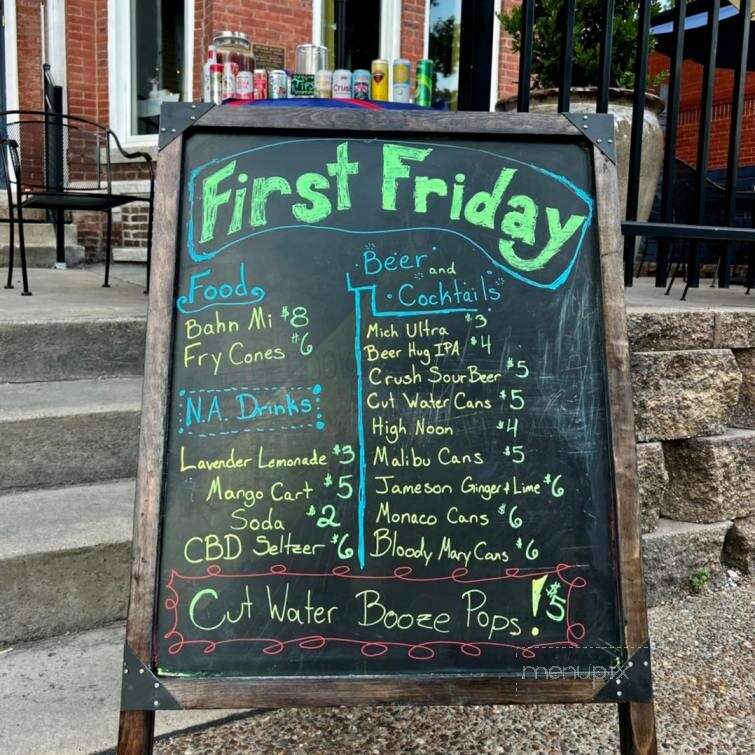 First Friday
Food
Bahn Mi $8
Fry Cones $6
N.A. Drinks
Lavender Lemonade $3
Mango Cart $5
Soda $2
CBD Seltzer $6
Beer and
Cocktails
Mich Ultra $3
Beer Hug IPA $4
Crush Sour Beer $5
Cut Water Cans $5
High Noon $4
Malibu Cans $5
Jameson Ginger + Lime $6
Monaco Cans $6
Bloody Mary Cans $6
Cut Water Booze Pops! $5
menupix